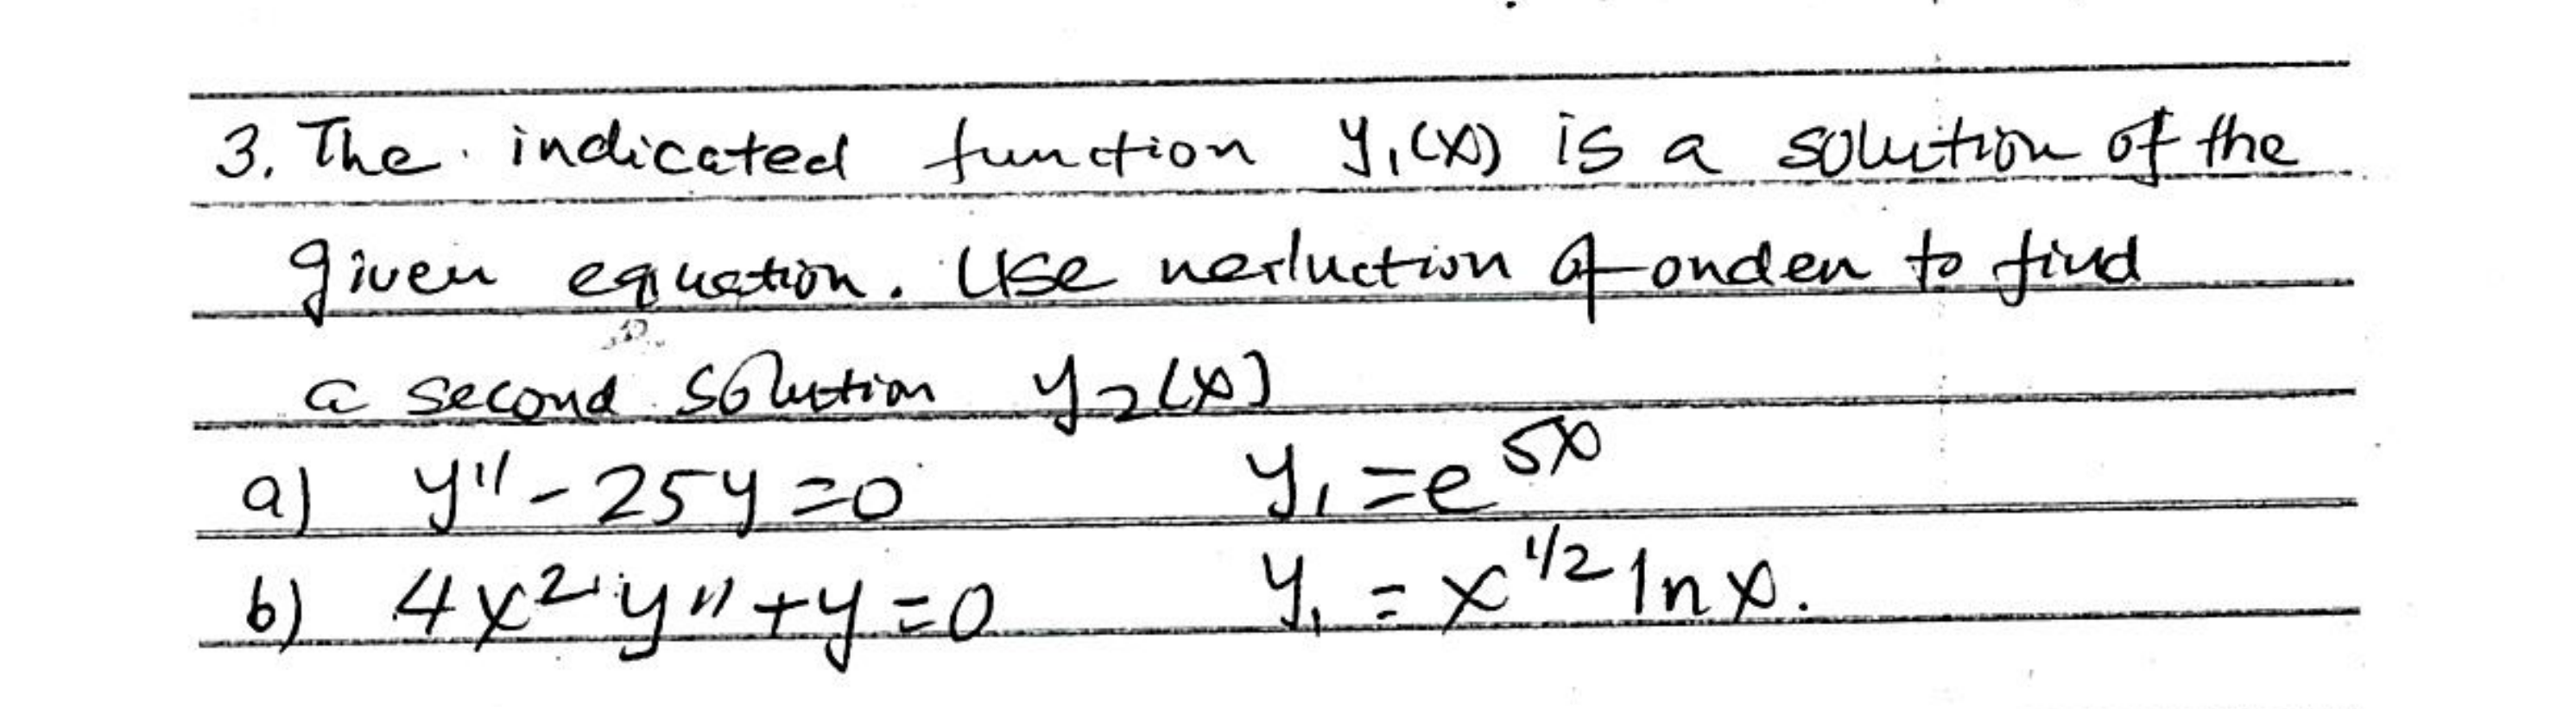 3. The indicated function y₁(x) is a solution of the
given equation. Use reduction of order to find
a second solution y₂(x)
a) y'' - 25y = 0 y₁ = e^5x
b) 4x² y'' + y = 0 y₁ = x^1/2 ln x.